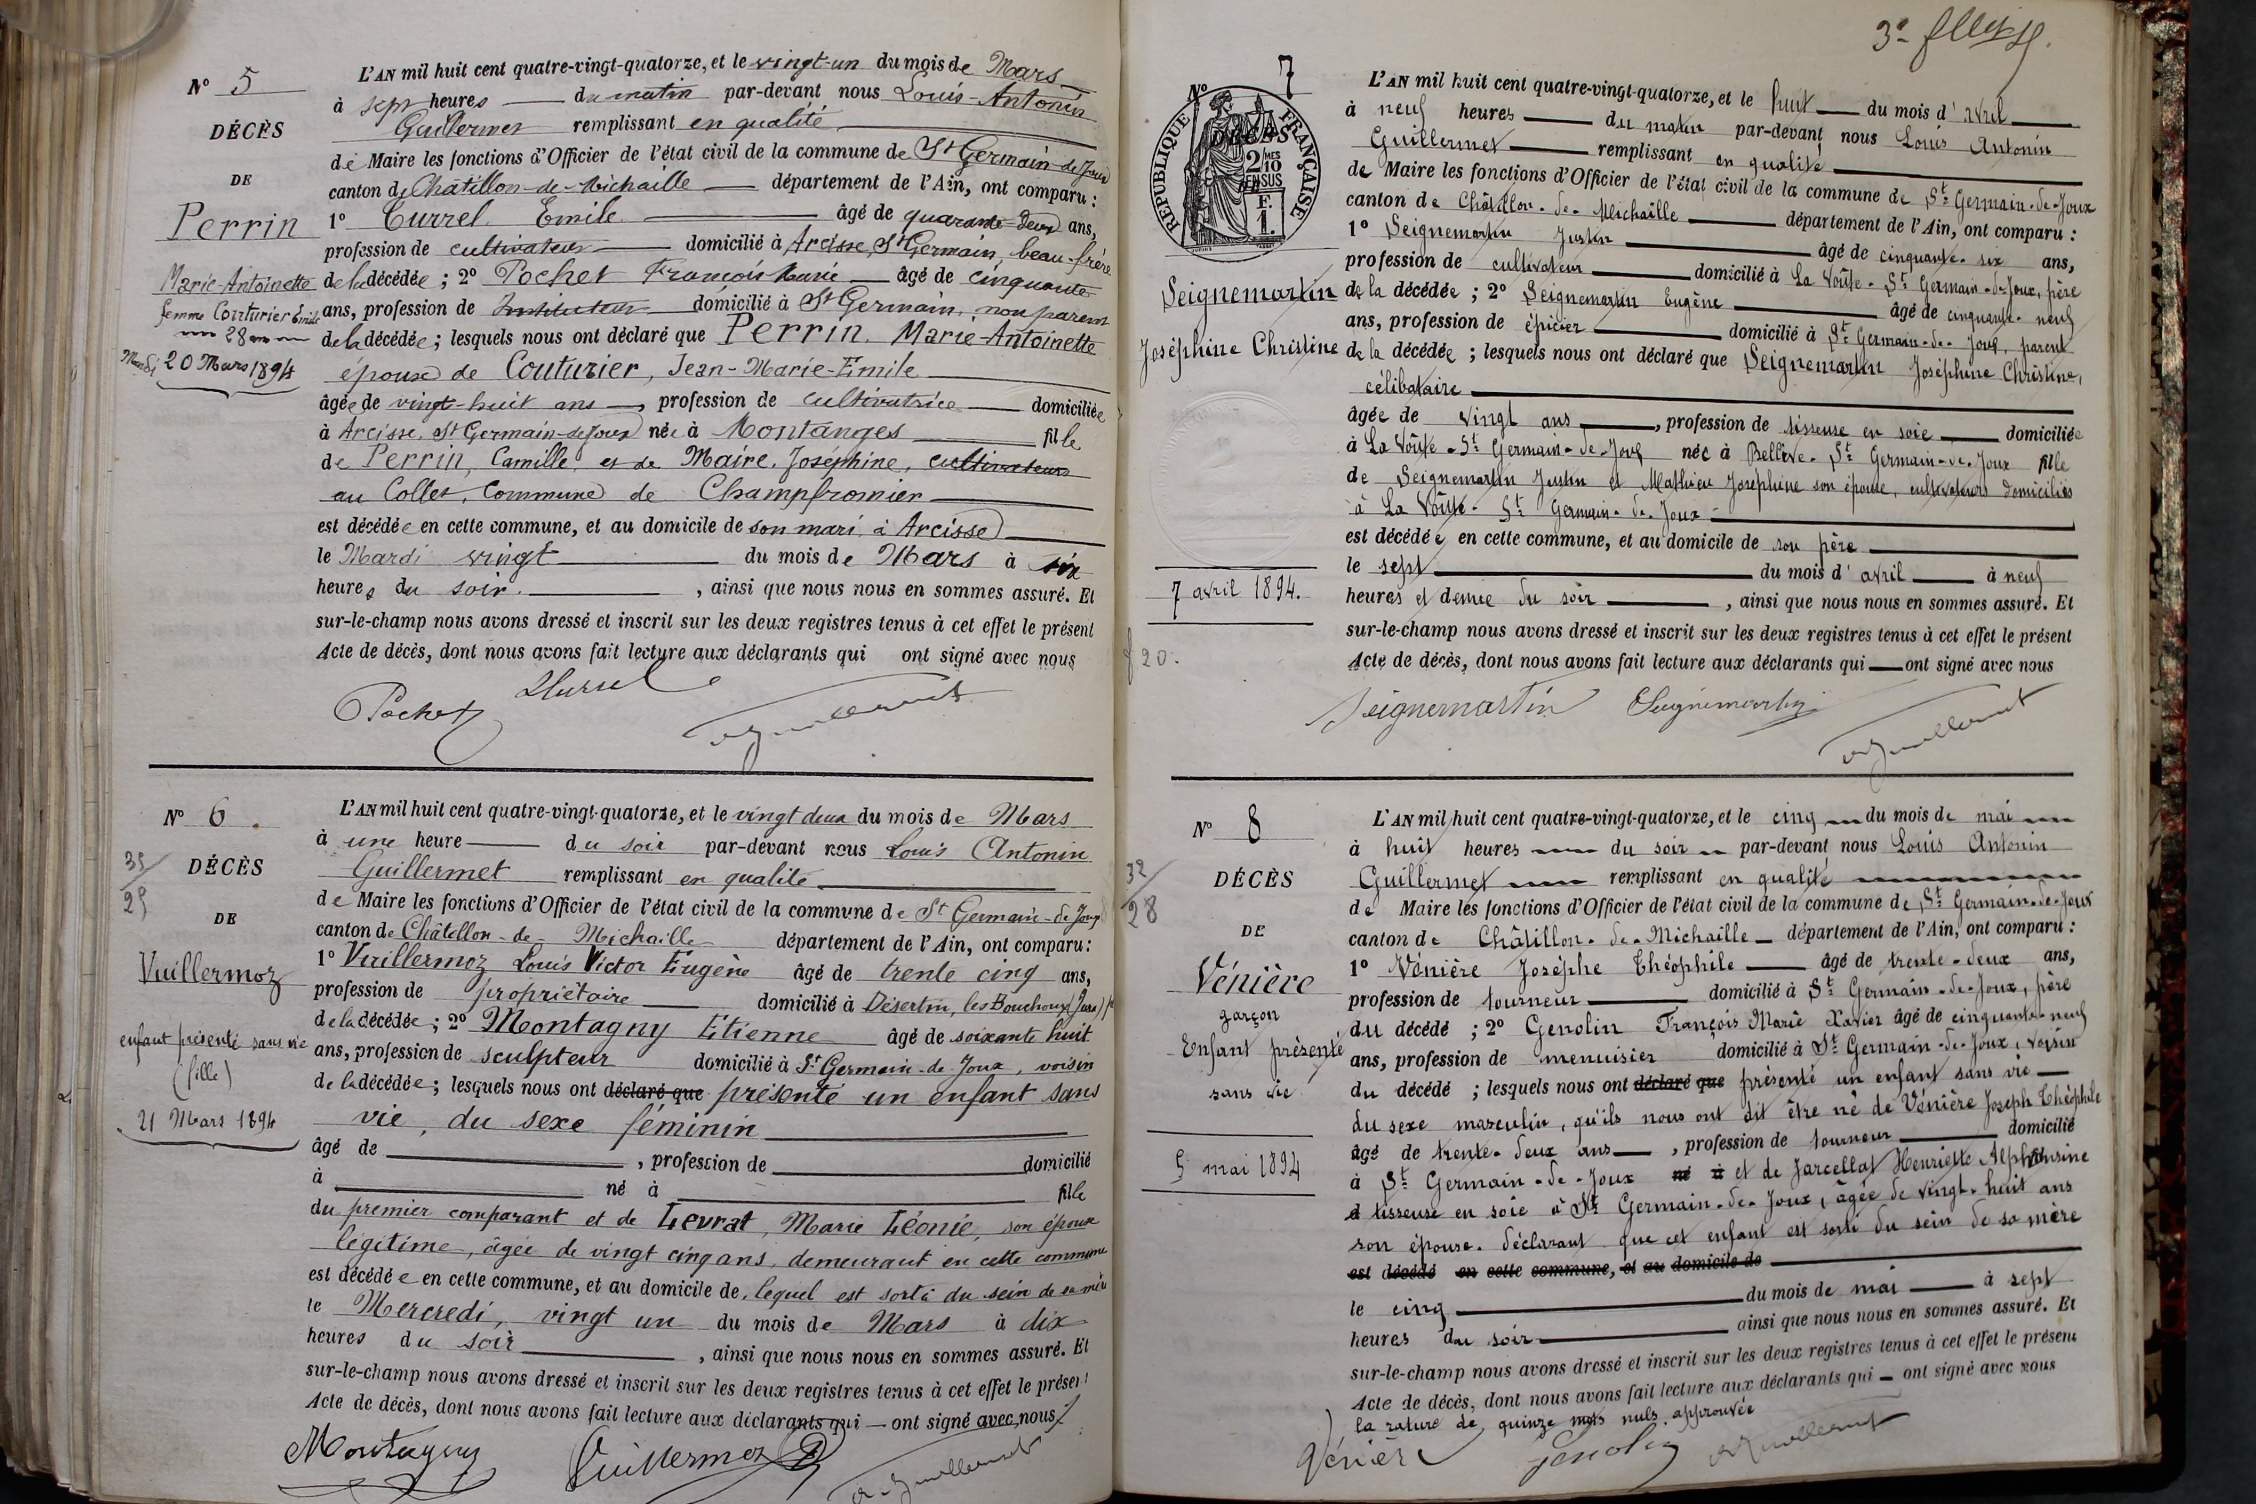 N° 5
DÉCÈS
DE
Perrin
Marie-Antoinette
femme Couturier Émile
28
Mardi 20 Mars 1894
L'AN mil huit cent quatre-vingt-quatorze, et le vingt-un du mois de Mars
à sept heures du matin par-devant nous Louis-Antonin
Guillermet remplissant en qualité
de Maire les fonctions d'Officier de l'état civil de la commune de St Germain-de-Joux
canton de Châtillon-de-Michaille département de l'Ain, ont comparu :
1° Turrel Emile âgé de quarante-deux ans,
profession de cultivateur domicilié à Arcisse, St Germain, beau-frère
de la décédée ; 2° Pochet François Marie âgé de cinquante
ans, profession de Instituteur domicilié à St Germain, non parent
de la décédée ; lesquels nous ont déclaré que Perrin, Marie-Antoinette
épouse de Couturier, Jean-Marie-Emile
âgée de vingt-huit ans, profession de cultivatrice domiciliée
à Arcisse, St Germain-de-Joux née à Montanges fille
de Perrin, Camille et de Maire, Joséphine, cultivateurs
au Collet, Commune de Champfromier
est décédée en cette commune, et au domicile de son mari à Arcisse
le Mardi vingt du mois de Mars à six
heures du soir, ainsi que nous nous en sommes assuré. Et
sur-le-champ nous avons dressé et inscrit sur les deux registres tenus à cet effet le présent
Acte de décès, dont nous avons fait lecture aux déclarants qui ont signé avec nous
Pochet Turrel A. Guillermet
N° 6
35/25
DÉCÈS
DE
Vuillermoz
enfant présenté sans vie
(fille)
21 Mars 1894
L'AN mil huit cent quatre-vingt-quatorze, et le vingt deux du mois de Mars
à une heure du soir par-devant nous Louis Antonin
Guillermet remplissant en qualité
de Maire les fonctions d'Officier de l'état civil de la commune de St Germain-de-Joux
canton de Châtillon-de-Michaille département de l'Ain, ont comparu :
1° Vuillermoz Louis Victor Eugène âgé de trente cinq ans,
profession de propriétaire domicilié à Désertin, les Bouchoux (Jura)
de la décédée ; 2° Montagny Etienne âgé de soixante huit
ans, profession de sculpteur domicilié à St Germain-de-Joux, voisin
de la décédée ; lesquels nous ont déclaré que présenté un enfant sans
vie, du sexe féminin
âgé de, profession de domicilié
à né à fille
du premier comparant et de Levrat, Marie Léonie, son épouse
légitime, âgée de vingt cinq ans, demeurant en cette commune
est décédée en cette commune, et au domicile de, lequel est sorti du sein de sa mère
le Mercredi, vingt un du mois de Mars à dix
heures du soir, ainsi que nous nous en sommes assuré. Et
sur-le-champ nous avons dressé et inscrit sur les deux registres tenus à cet effet le présent
Acte de décès, dont nous avons fait lecture aux déclarants qui — ont signé avec nous
Montagny Vuillermoz A. Guillermet
3e
N° 7
RÉPUBLIQUE FRANÇAISE
2/10 MES
EN SUS
F.
1.
DÉCÈS
Seignemartin
Joséphine Christine
7 avril 1894.
f 20.
L'AN mil huit cent quatre-vingt-quatorze, et le huit du mois d'avril
à neuf heures du matin par-devant nous Louis Antonin
Guillermet remplissant en qualité
de Maire les fonctions d'Officier de l'état civil de la commune de St Germain-de-Joux
canton de Châtillon-de-Michaille département de l'Ain, ont comparu :
1° Seignemartin Justin âgé de cinquante-six ans,
profession de cultivateur domicilié à La Voûte-St Germain-de-Joux, père
de la décédée ; 2° Seignemartin Eugène âgé de cinquante-neuf
ans, profession de épicier domicilié à St Germain-de-Joux, parent
de la décédée ; lesquels nous ont déclaré que Seignemartin Joséphine Christine,
célibataire
âgée de vingt ans, profession de tisseuse en soie domiciliée
à La Voûte-St Germain-de-Joux née à Bellève-St Germain-de-Joux fille
de Seignemartin Justin et Mathieu Joséphine son épouse, cultivateurs domiciliés
à La Voûte-St Germain-de-Joux
est décédée en cette commune, et au domicile de son père
le sept du mois d'avril à neuf
heures et demie du soir, ainsi que nous nous en sommes assuré. Et
sur-le-champ nous avons dressé et inscrit sur les deux registres tenus à cet effet le présent
Acte de décès, dont nous avons fait lecture aux déclarants qui — ont signé avec nous
Seignemartin E Seignemartin A. Guillermet
N° 8
32/28
DÉCÈS
DE
Vénière
garçon
Enfant présenté
sans vie
5 mai 1894
L'AN mil huit cent quatre-vingt-quatorze, et le cinq du mois de mai
à huit heures du soir par-devant nous Louis Antonin
Guillermet remplissant en qualité
de Maire les fonctions d'Officier de l'état civil de la commune de St Germain-de-Joux
canton de Châtillon-de-Michaille département de l'Ain, ont comparu :
1° Vénière Joséphe Théophile âgé de trente-deux ans,
profession de tourneur domicilié à St Germain-de-Joux, père
du décédé ; 2° Genolin François Marie Xavier âgé de cinquante-neuf
ans, profession de menuisier domicilié à St Germain-de-Joux, voisin
du décédé ; lesquels nous ont déclaré que présenté un enfant sans vie
du sexe masculin, qu'ils nous ont dit être né de Vénière Joseph Théophile
âgé de trente-deux ans, profession de tourneur domicilié
à St Germain-de-Joux né à et de Jarcellat Henriette Alphonsine
d tisseuse en soie à St Germain-de-Joux, âgée de vingt-huit ans
son épouse. déclarant que cet enfant est sorti du sein de sa mère
est décédé en cette commune, et au domicile de
le cinq du mois de mai à sept
heures du soir ainsi que nous nous en sommes assuré. Et
sur-le-champ nous avons dressé et inscrit sur les deux registres tenus à cet effet le présent
Acte de décès, dont nous avons fait lecture aux déclarants qui — ont signé avec nous
la rature de quinze mots nuls approuvée
Vénière Genolin A. Guillermet